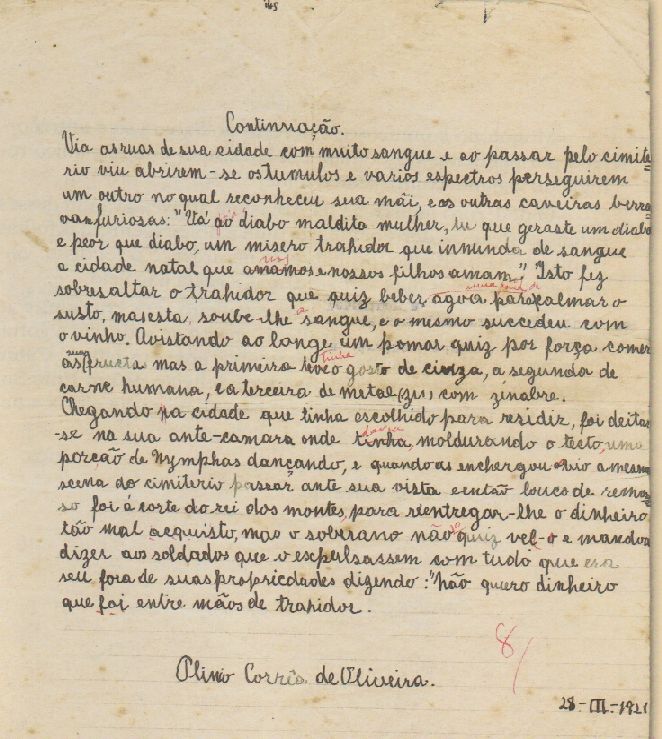 Continuação.
Via as ruas de sua cidade com muito sangue e ao passar pelo cimite-
rio viu abrirem-se os tumulos e varios espectros perseguirem
um outro no qual reconheceu sua mãi, e as outras caveiras berra-
vam furiosas: "Vá ao diabo maldita mulher, tu que geraste um diabo
e peor que diabo, um misero trahidor que innunda de sangue
a cidade natal que amamos e nossos filhos amam." Isto fez
sobresaltar o trahidor que quiz beber agoa para calmar o
susto, mas esta, soube-lhe a sangue, e o mesmo succedeu com
o vinho. Avistando ao longe um pomar quiz por força comer
as fructa mas a primeira teve gosto de cinza, a segunda de
tinha
carne humana, e a terceira de metal (zn) com zinabre.
Chegando na cidade que tinha escolhido para residir, foi deitar
-se na sua ante-camara onde tinha, moldurando o tecto, uma
porção de Nymphas dançando, e quando as enchergou viu a mesma
scena do cimiterio passar ante sua vista e então louco de remor-
so foi á corte do rei dos montes, para reentregar-lhe o dinheiro
tão mal acquisto, mas o soberano não quiz vel-o e mandou
dizer aos soldados que o expulsassem com tudo que era
seu fora de suas propriedades dizendo: "não quero dinheiro
que foi entre mãos de trahidor.
8/
Plinio Corrêa de Oliveira.
28-III-1921